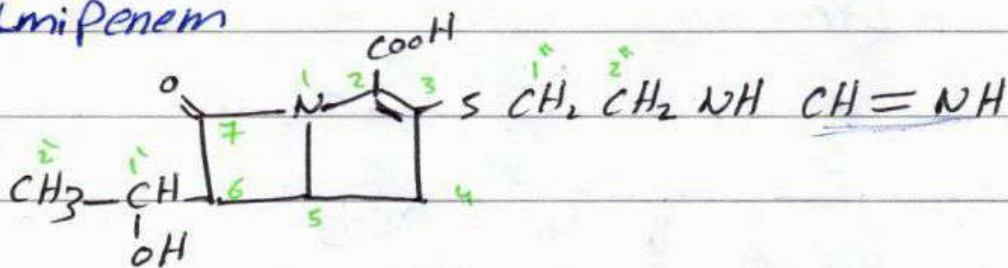 Imipenem
COOH
O 1 N 2 3 S 1" CH2 2" CH2 NH CH = NH
7
2' CH3 — 1' CH 6 5 4
OH